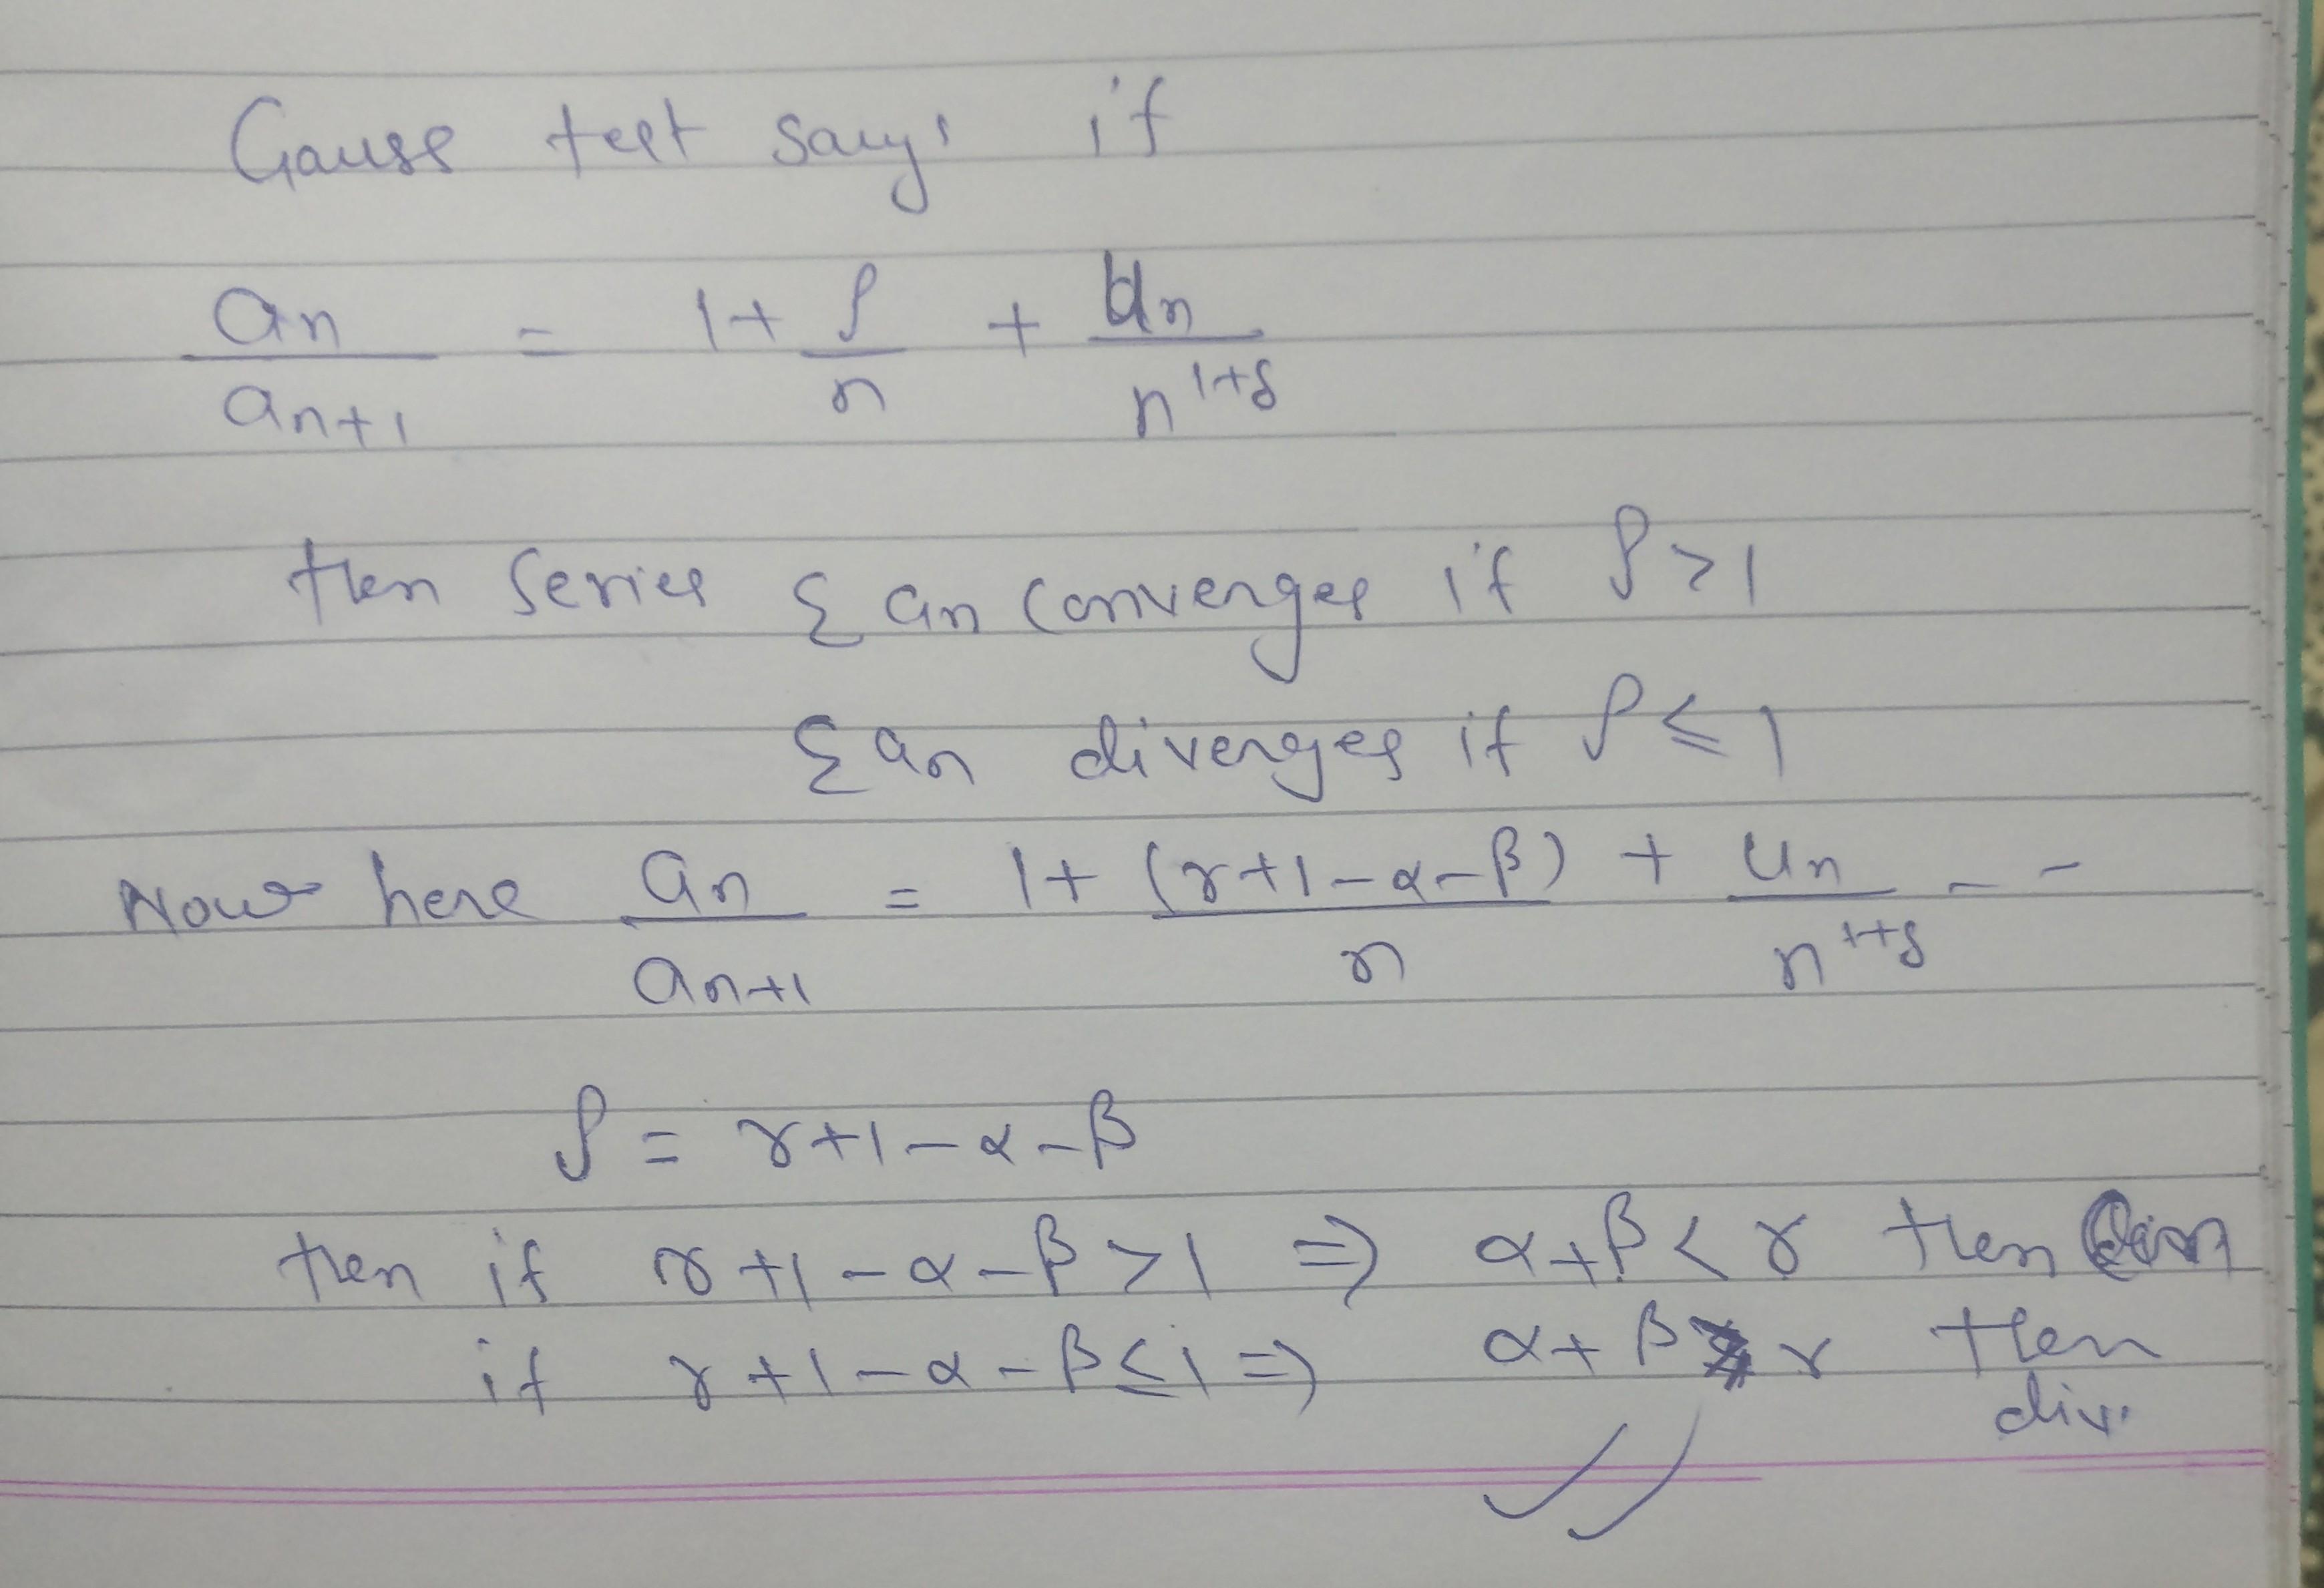 Gauss test says if
an/an+1 = 1 + ρ/n + Un/n^1+δ
then series Σ an converges if ρ>1
Σ an diverges if ρ≤1
Now here an/an+1 = 1 + (γ+1-α-β)/n + Un/n^1+δ - -
ρ = γ+1-α-β
then if γ+1-α-β>1 ⇒ α+β<γ then
if γ+1-α-β≤1 ⇒ α+β γ then
div.